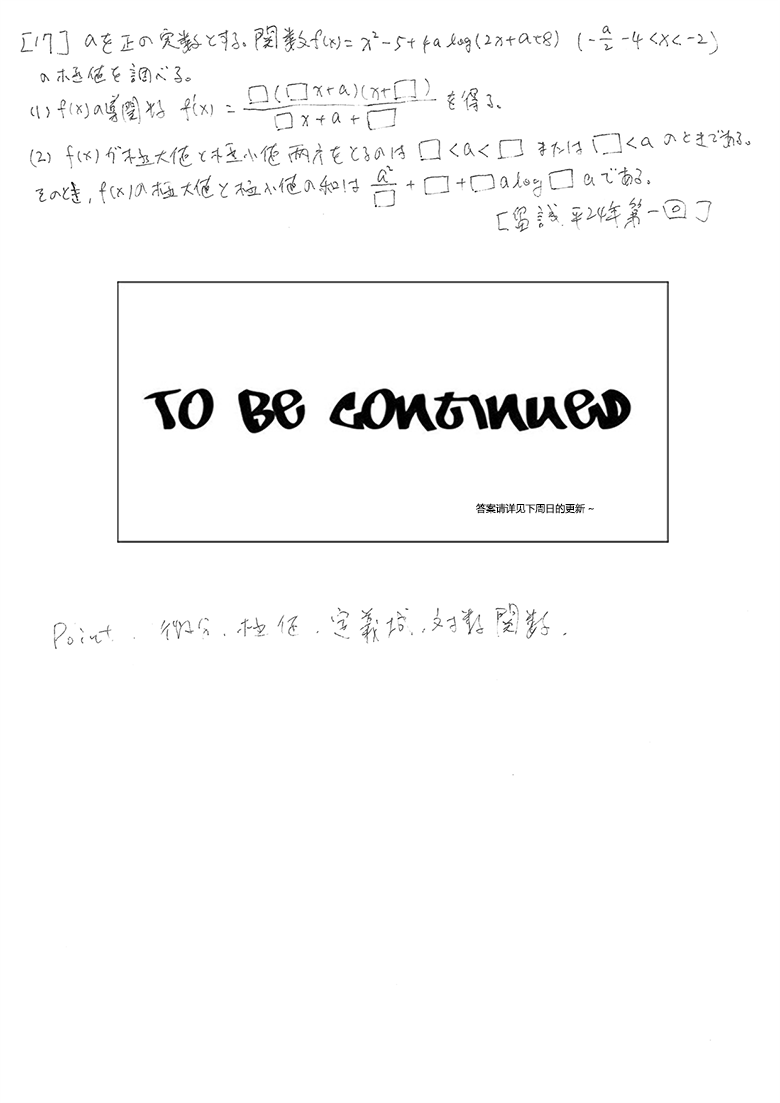 [17] aを正の実数とする。関数f(x)= x²-5+4a log(2x+a+8) (-a/2 -4<x<-2)
の極値を調べる。
(1) f(x)の導関数 f'(x) = □(□x+a)(x+□) / □x+a+□ を得る。
(2) f(x)が極大値と極小値両方をとるのは □<a<□ または □<a のときである。
そのとき, f(x)の極大値と極小値の和は a²/□ + □ + □a log □ a である。
[留試 平24年第一回]
TO BE CONTINUED
答案请详见下周日的更新~
Point. 微分、極値、定義域、対数関数.